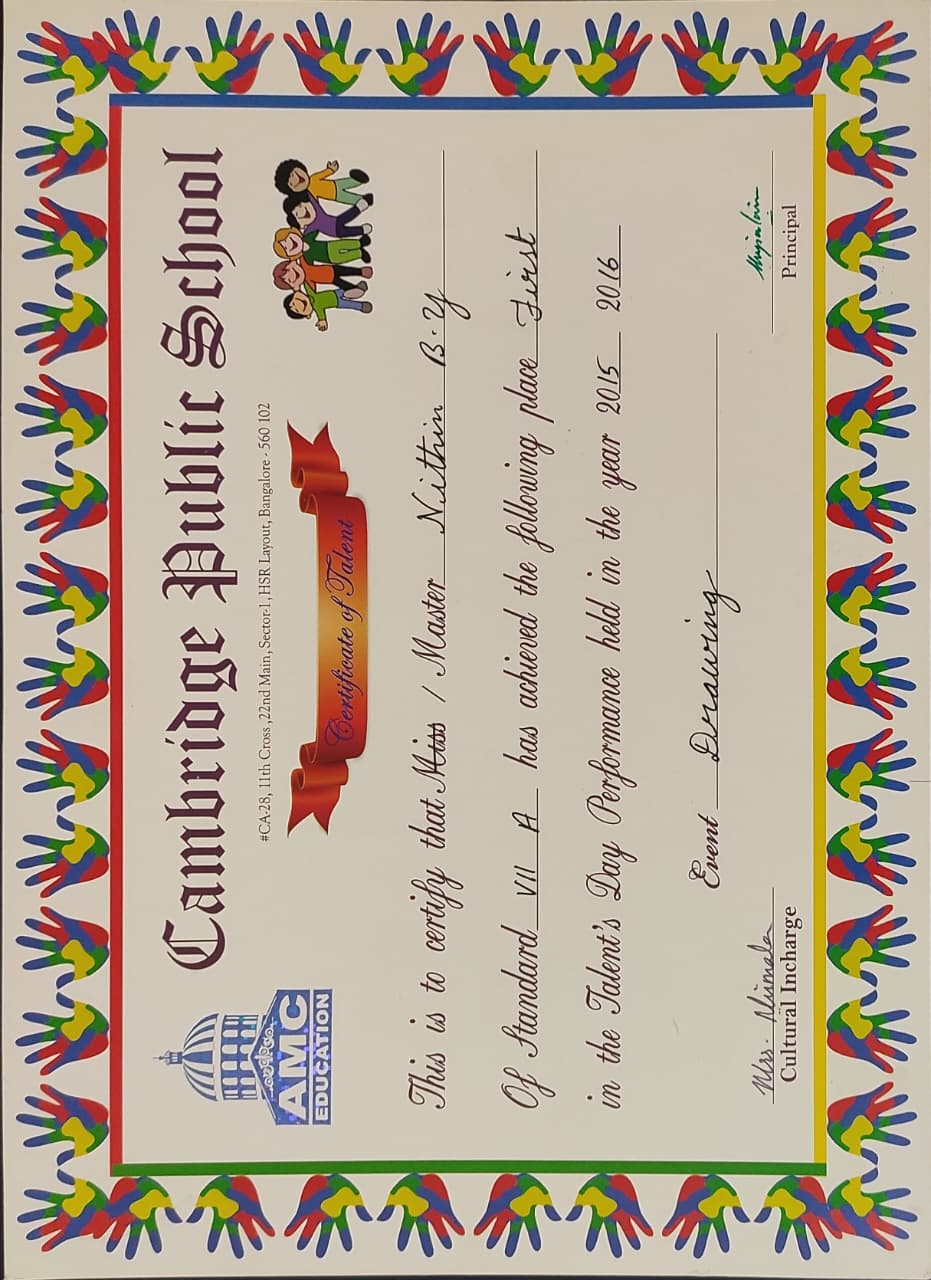 Cambridge Public School
#CA-28, 11th Cross ,22nd Main, Sector-1, HSR Layout, Bangalore - 560 102
AMC
EDUCATION
Certificate of Talent
This is to certify that Miss / Master Nithin B.Y
Of Standard VII A has achieved the following place First
in the Talent's Day Performance held in the year 2015 2016
Event Drawing
Mrs. Nirmala
Cultural Incharge
Principal